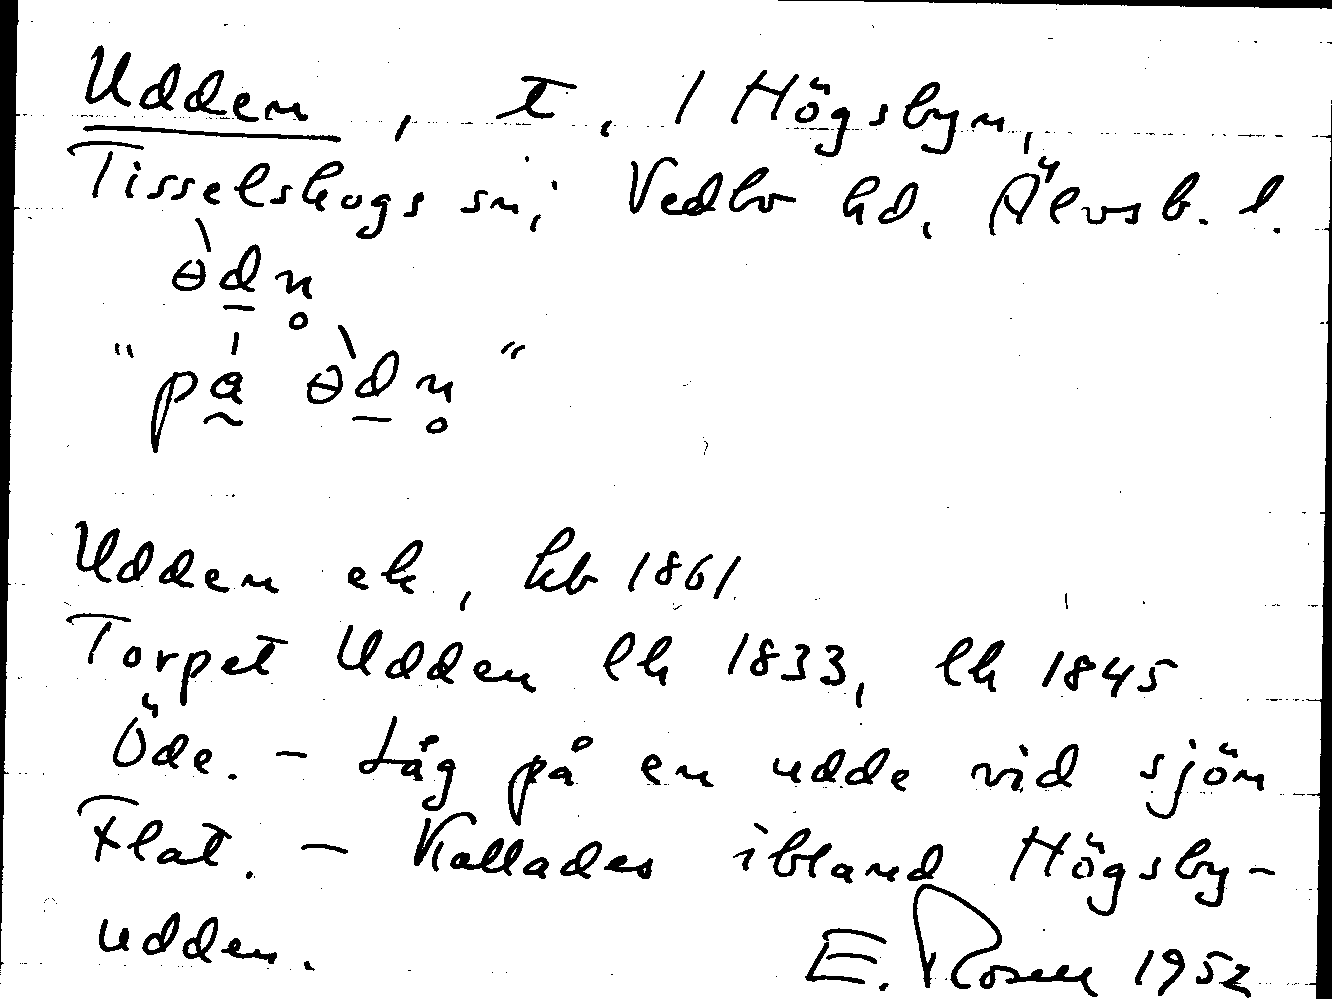 Udden, t, 1 Högsbyn,
Tisselskogs sn, Vedbo hd, Älvsb. l.
ə̀d̲n̥
"pá̰ ə̀d̲n̥"
Udden ek, kb 1861
Torpet Udden lk 1833, lk 1845
Öde. - Låg på en udde vid sjön
Flat. - Kallades ibland Högsby-
udden.
E. Rosen 1952